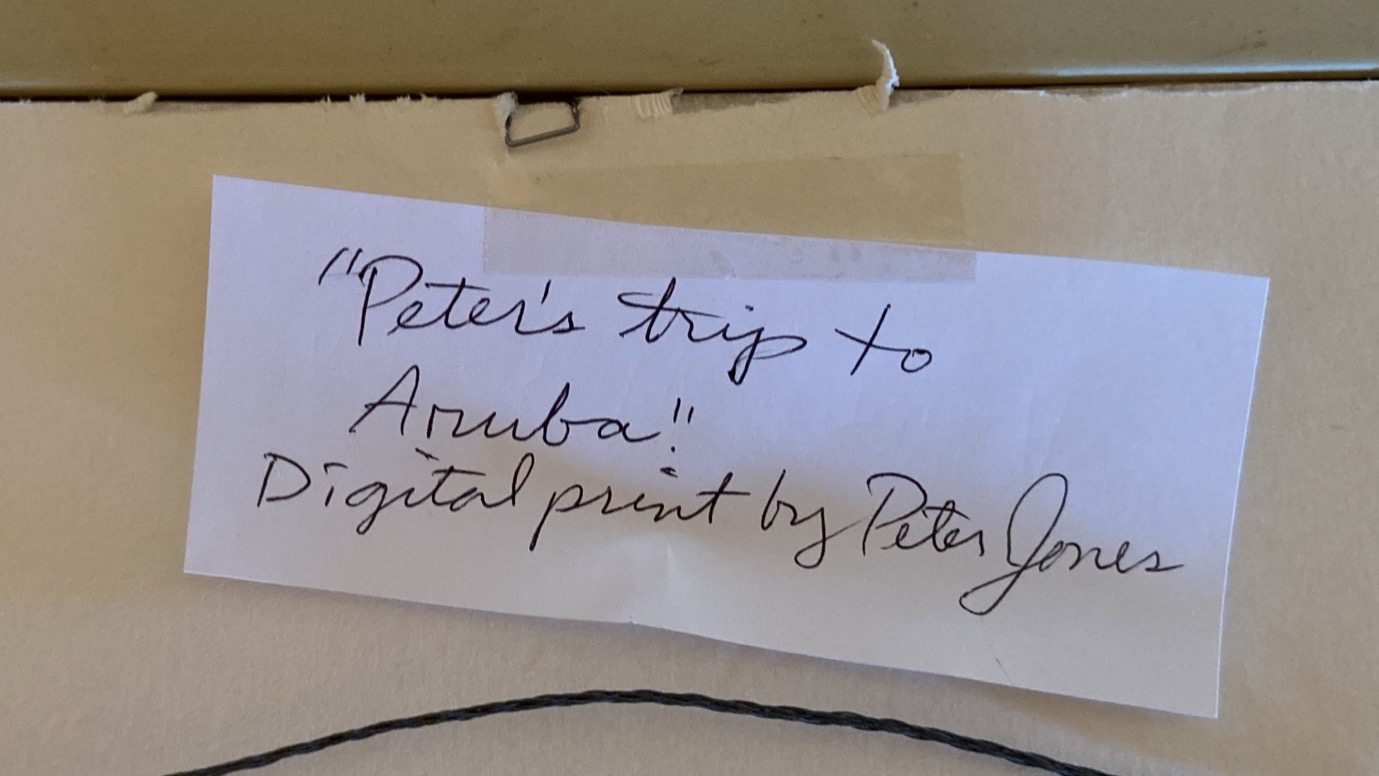 "Peter's trip to
Aruba."
Digital print by Peter Jones